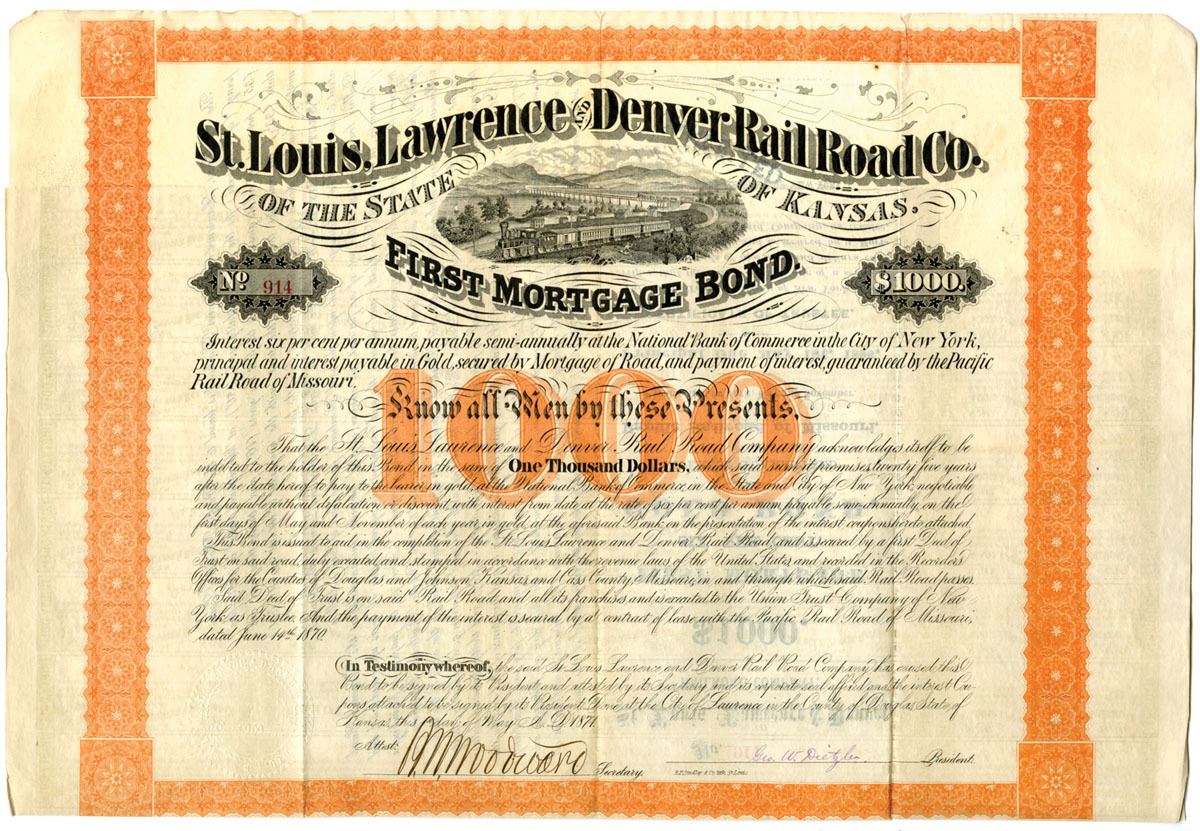 St. Louis, Lawrence AND Denver Rail Road Co.
OF THE STATE OF KANSAS.
FIRST MORTGAGE BOND.
No. 914
$1000.
Interest six per cent per annum, payable semi-annually at the National Bank of Commerce in the City of New York,
principal and interest payable in Gold, secured by Mortgage of Road, and payment of interest, guaranteed by the Pacific
Rail Road of Missouri.
1000
Know all Men by these Presents,
That the St. Louis Lawrence and Denver Rail Road Company acknowledges itself to be
indebted to the holder of this Bond in the sum of One Thousand Dollars, which said sum it promises twenty five years
after the date hereof to pay to the bearer in gold, at the National Bank of Commerce, in the State and City of New York, negotiable
and payable without defalcation or discount, with interest from date at the rate of six per cent per annum, payable semi annually, on the
first days of May and November of each year in gold, at the aforesaid Bank, on the presentation of the interest coupons hereto attached.
This Bond is issued to aid in the completion of the St. Louis, Lawrence and Denver Rail Road, and is secured by a first Deed of
Trust on said road, duly executed and stamped in accordance with the revenue laws of the United States, and recorded in the Recorders
Offices for the Counties of Douglas and Johnson, Kansas, and Cass County, Missouri, in and through which said Rail Road passes.
Said Deed of Trust is on said Rail Road, and all its franchises and is executed to the Union Trust Company of New
York, as Trustee. And the payment of the interest is secured by a contract of lease with the Pacific Rail Road of Missouri,
dated June 14th 1870.
In Testimony whereof, the said St. Louis Lawrence and Denver Rail Road Company, has caused this
Bond to be signed by its President and attested by its Secretary and its corporate seal affixed and the interest Cou-
pons attached to be signed by its President. Done at the City of Lawrence in the County of Douglas, State of
Kansas this day of May A.D. 1871.
Attest: Woodward Secretary. Geo. W. Deitzler President.